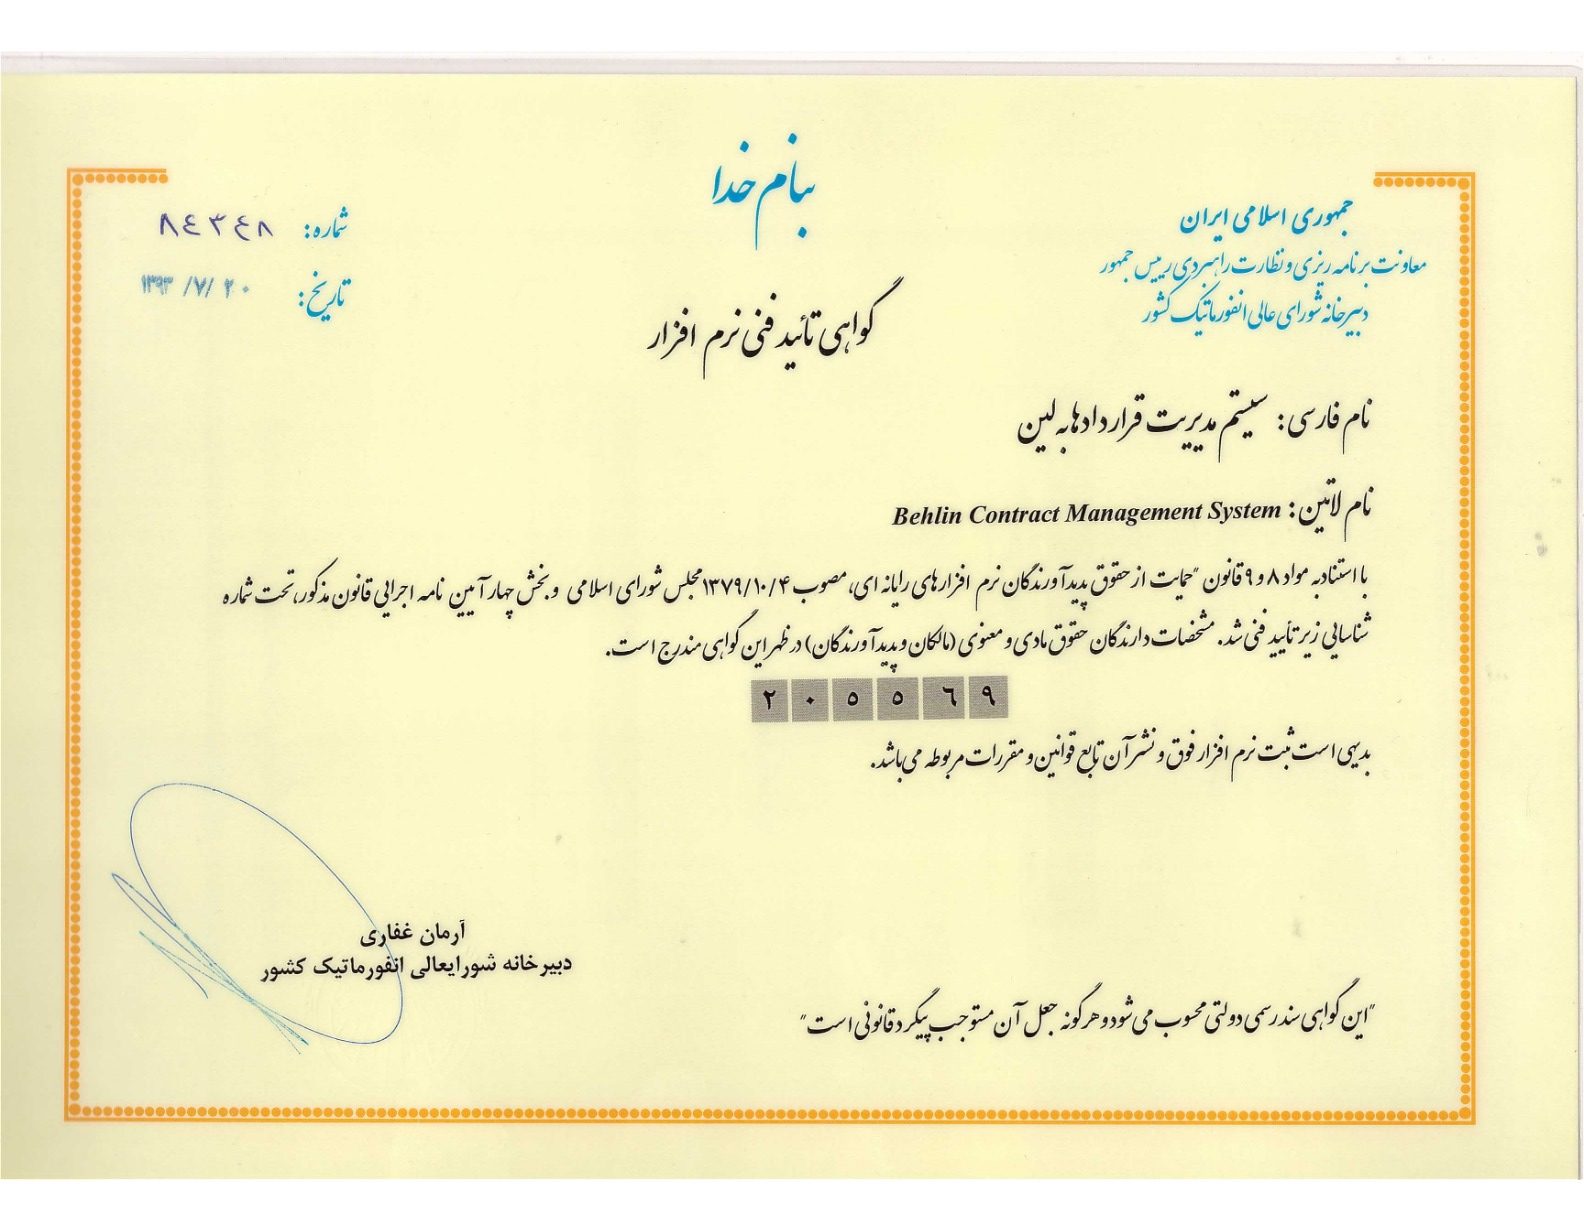 بنام خدا
جمهوری اسلامی ایران
معاونت برنامه ریزی و نظارت راهبردی رییس جمهور
دبیرخانه شورای عالی انفورماتیک کشور
شماره: ۸۴۳۴۸
تاریخ: ۱۳۹۳/۷/۲۰
گواهی تائید فنی نرم افزار
نام فارسی: سیستم مدیریت قراردادها به لین
نام لاتین: Behlin Contract Management System
با استناد به مواد ۸ و ۹ قانون "حمایت از حقوق پدیدآورندگان نرم افزارهای رایانه ای، مصوب ۱۳۷۹/۱۰/۴ مجلس شورای اسلامی و بخش چهار آیین نامه اجرایی قانون مذکور، تحت شماره
شناسایی زیر تأیید فنی شد. مشخصات دارندگان حقوق مادی و معنوی (مالکان و پدیدآورندگان) در ظهر این گواهی مندرج است.
۲۰۵۵۶۹
بدیهی است ثبت نرم افزار فوق و نشر آن تابع قوانین و مقررات مربوطه می باشد.
آرمان غفاری
دبیرخانه شورایعالی انفورماتیک کشور
"این گواهی سند رسمی دولتی محسوب می شود و هرگونه جعل آن مستوجب پیگرد قانونی است"